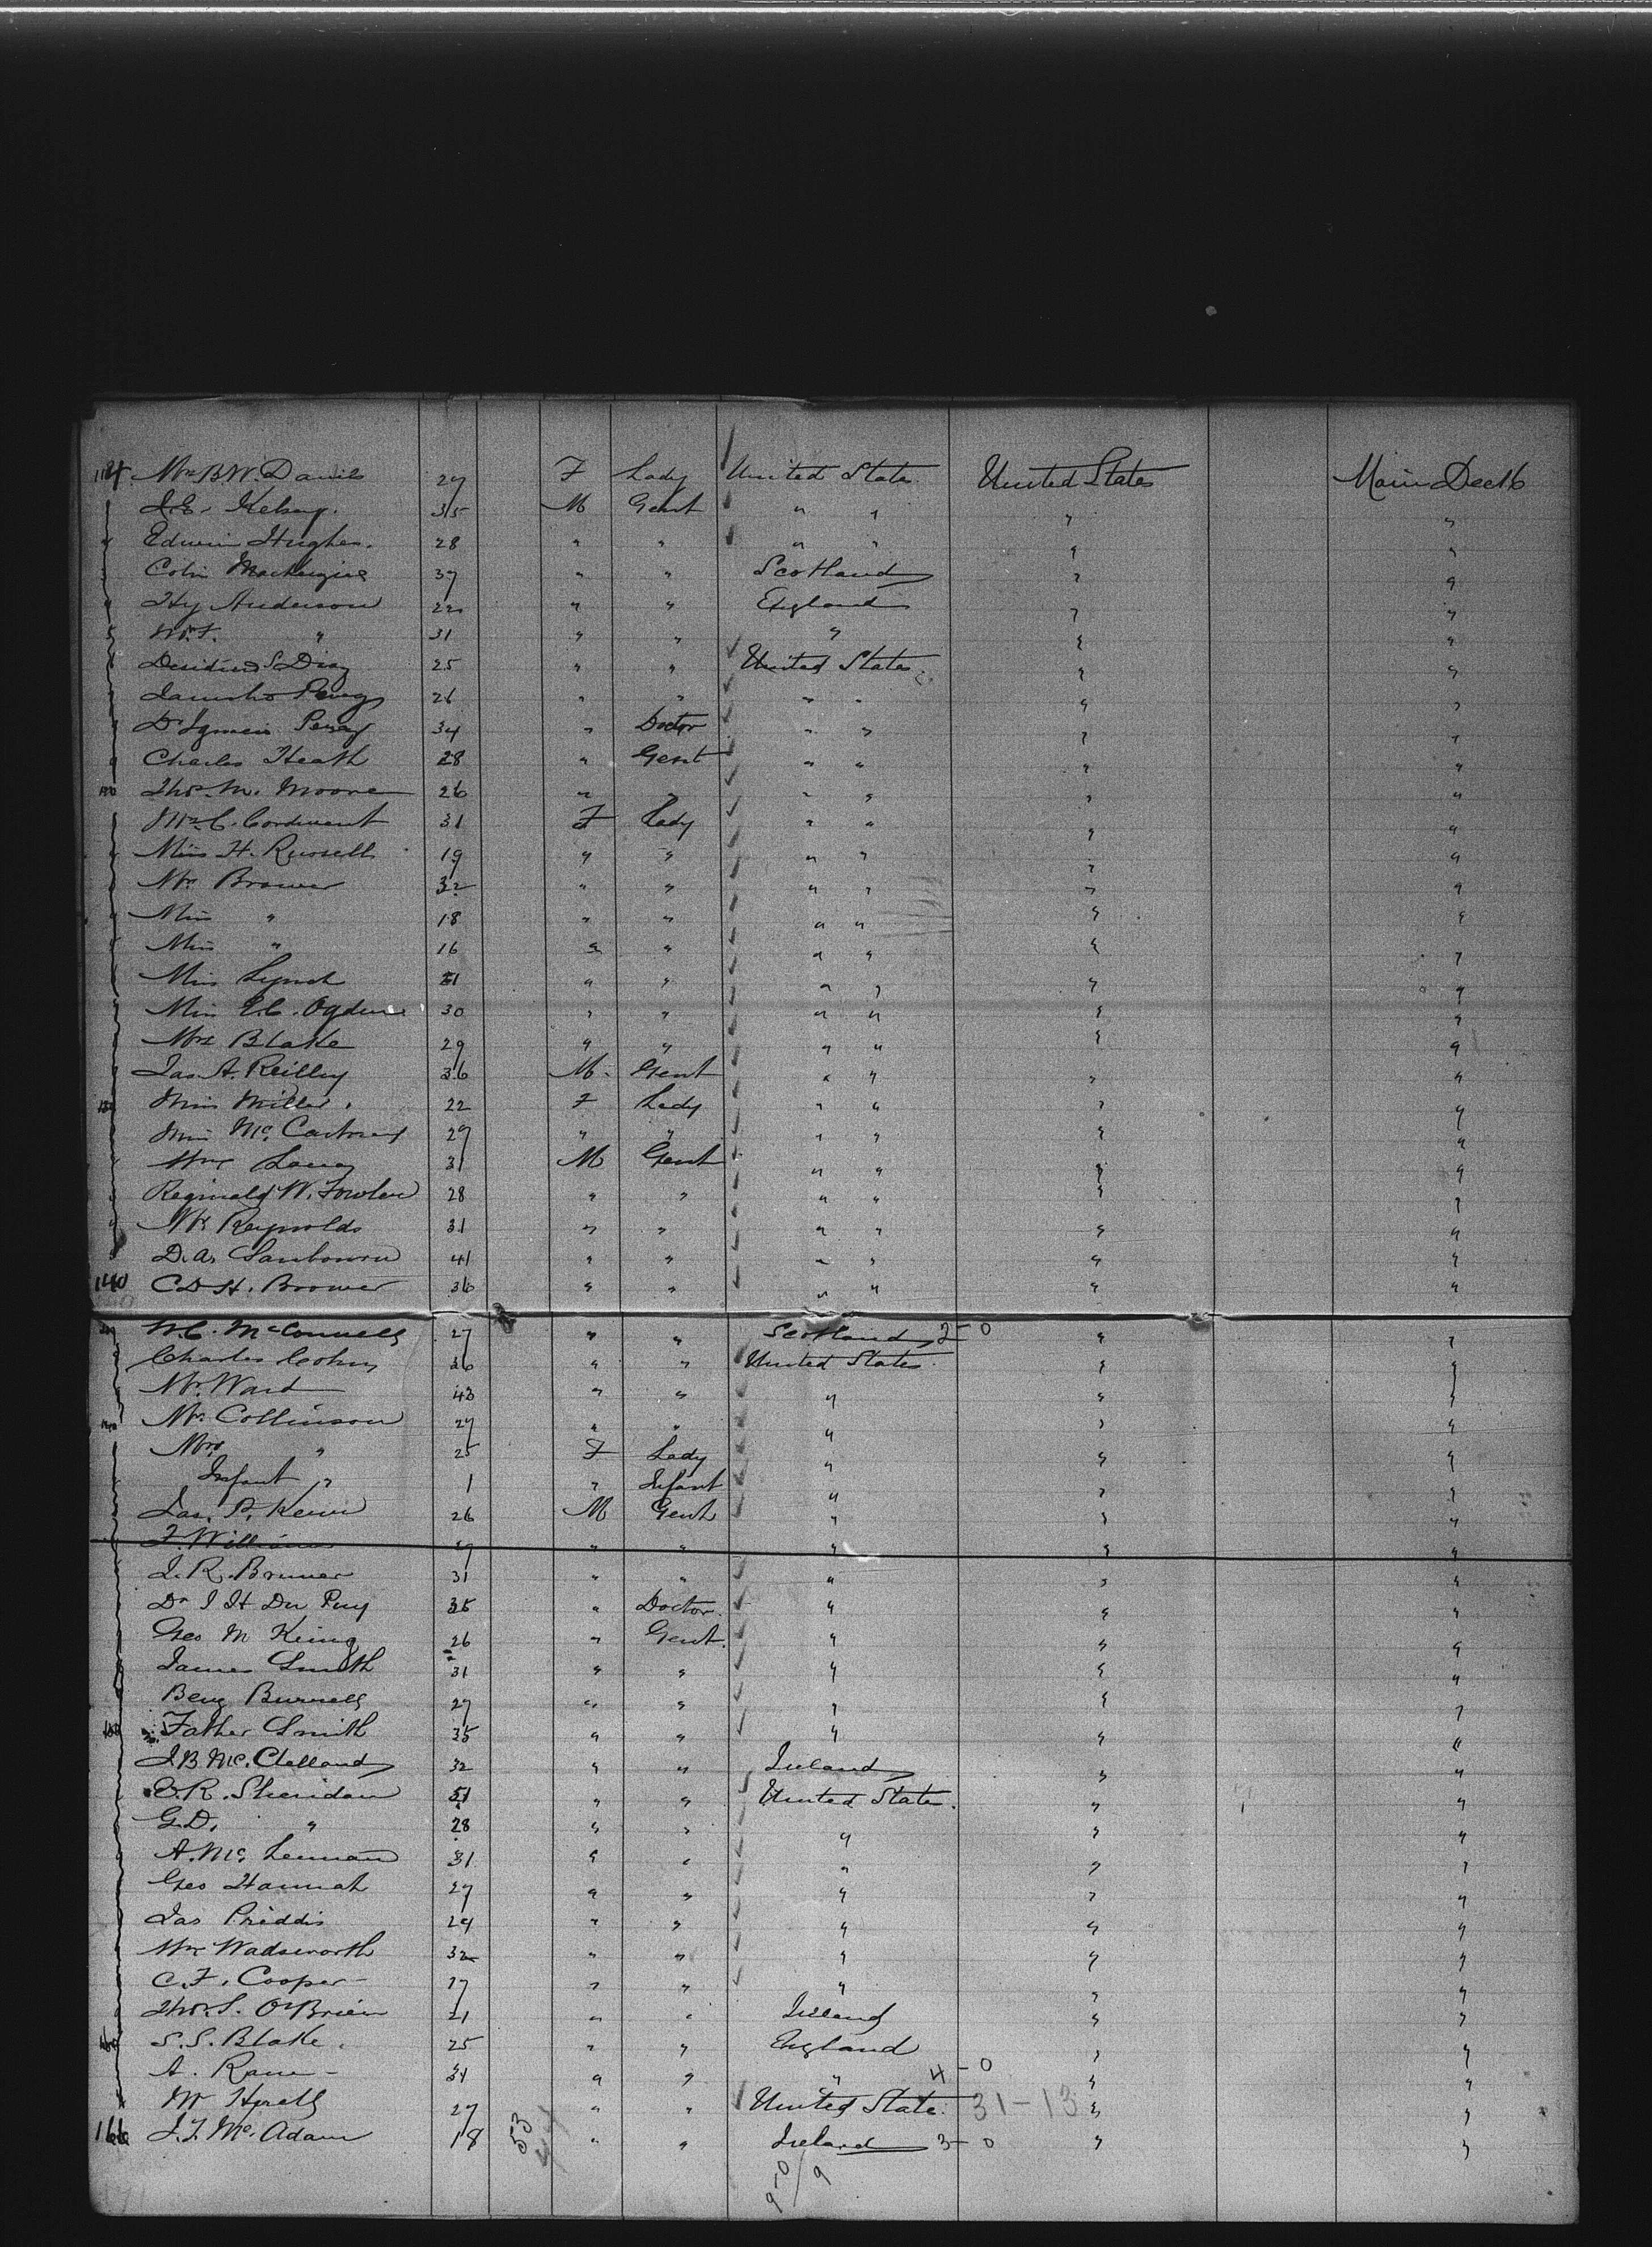 114. Mrs B.W. Daniels 27 F Lady United State United States Main Deck
J.E. Kelsey. 35 M Gent " " " "
Edwin Hughes. 28 " " " " " "
Colin Mackenzie 37 " " Scotland " "
Hy Anderson 22 " " England " "
W.F. " 31 " " " " "
S Diaz 25 " " United States " "
Perez 26 " " " " " "
Dr Perez 34 " Doctor " " " "
Charles Heath 28 " Gent " " " "
Thos. M. Moore 26 " " " " " "
Mrs C. Cordwent 31 F Lady " " " "
Miss H. Russell 19 " " " " " "
Mrs Brower 32 " " " " " "
Miss " 18 " " " " " "
Miss " 16 " " " " " "
Miss Lynch 21 " " " " " "
Miss E.C. Ogden 30 " " " " " "
Mrs Blake 29 " " " " " "
Jas. A. Reilley 36 M. Gent " " " "
Miss Miller. 22 F Lady " " " "
Miss Mc. Cartney 29 " " " " " "
Wm 31 M Gent " " " "
Reginald W. Fowler 28 " " " " " "
Mr Reynolds 31 " " " " " "
D.A. Sanbourn 41 " " " " " "
140 C.D.H. Brower 36 " " " " " "
W.C. McConnell 27 " " Scotland 2-0 " "
Charles Cohn 36 " " United States. " "
Mr. Ward 43 " " " " "
Mr. Collinson 27 " " " " "
Mrs " 25 F Lady " " "
Infant " 1 " Infant " " "
Jas. P. 26 M Gent " " "
F. Williams 27 " " " " "
J.R. Bruner 31 " " " " "
Dr J H Du Puy 35 " Doctor. " " "
Geo M King 26 " Gent. " " "
James Smith 31 " " " " "
Benj Burnell 27 " " " " "
Father Smith 35 " " " " "
J.B. Mc. Clelland 32 " " Ireland " "
E.R. Sheridan 31 " " United State. " "
G.D. " 28 " " " " "
A. Mc. Lennan 31 " " " " "
Geo Hannah 27 " " " " "
Jas Priddis 24 " " " " "
Wm Wadsworth 32 " " " " "
C.F. Cooper - 27 " " " " "
Thos. S. O'Brien 21 " " Ireland " "
S.S. Blake. 25 " " England " "
A. - 31 " " " 4-0 " "
Mr 27 " " United State. 31-13 " "
166 J.J. Mc. Adam 18 53 44 " " Ireland 3-0 " "
9-0/9